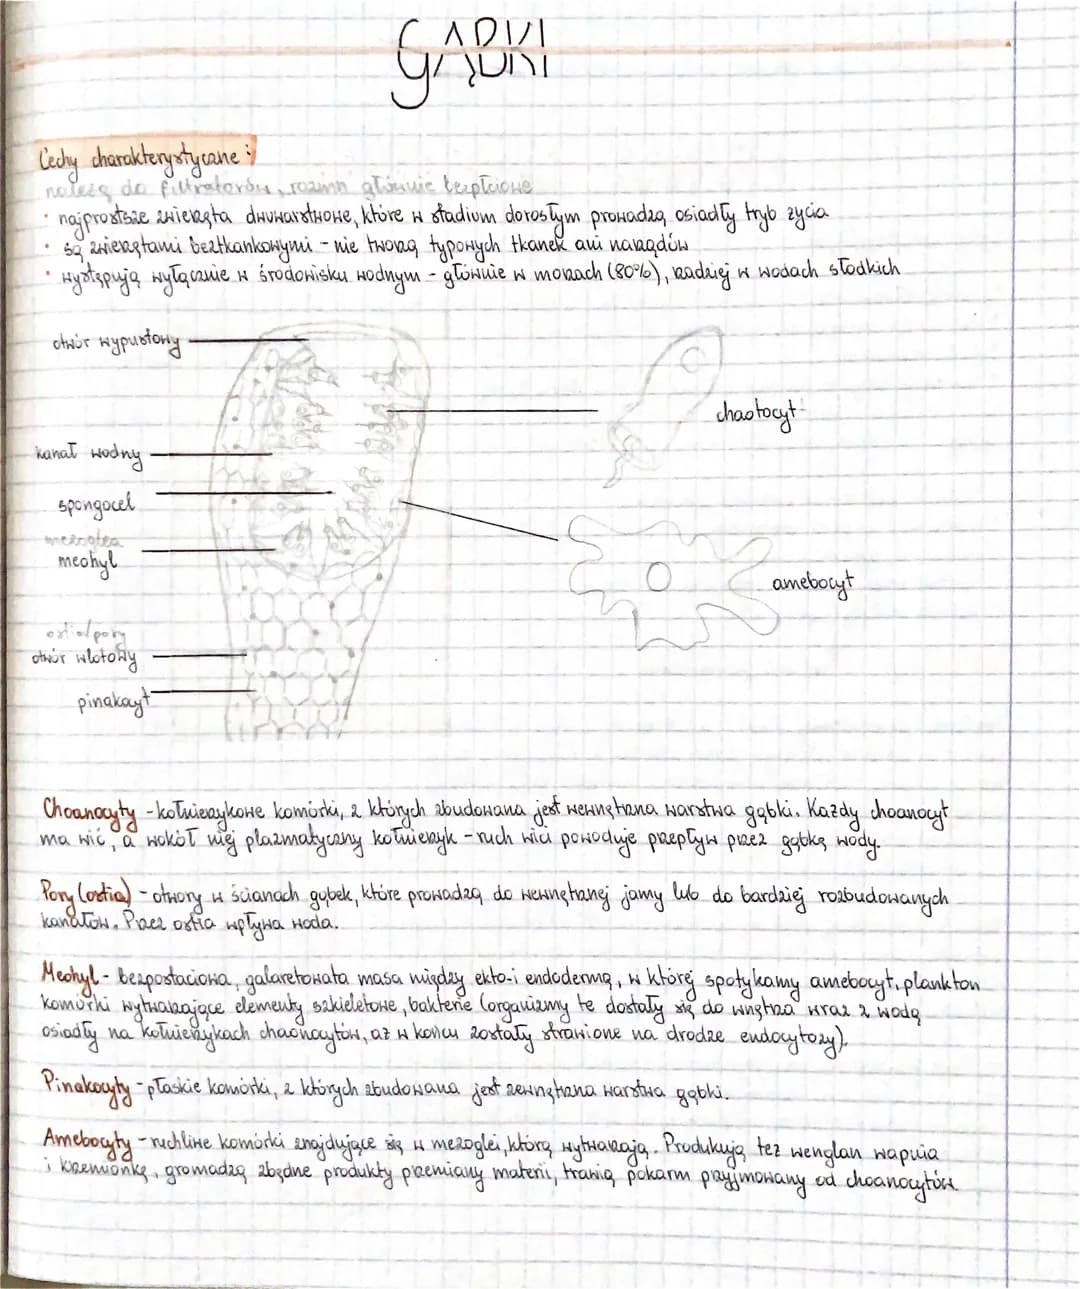 GĄBKI
Cechy charakterystyczne:
należą do filtratorów, rozmn głównie bezpłciowe
• najprostsze zwierzęta dwuwarstwowe, które w stadium dorosłym prowadzą osiadły tryb życia
• są zwierzętami beztkankowymi - nie tworzą typowych tkanek ani narządów
• występują wyłącznie w środowisku wodnym - głównie w morzach (80%), rzadziej w wodach słodkich
otwór wypustowy
chaotocyt
kanał wodny
spongocel
mezoglea
meohyl
amebocyt
ostia/pory
otwór wlotowy
pinakocyt
Choanocyty - kołnierzykowe komórki, z których zbudowana jest wewnętrzna warstwa gąbki. Każdy choanocyt
ma wić, a wokół niej plazmatyczny kołnierzyk - ruch wici powoduje przepływ przez gąbkę wody.
Pory (ostia) - otwory w ścianach gąbek, które prowadzą do wewnętrznej jamy lub do bardziej rozbudowanych
kanałów. Przez ostia wpływa woda.
Meohyl - bezpostaciowa, galaretowata masa między ekto- i endodermą, w której spotykamy amebocyt, plankton
komórki wytwarzające elementy szkieletowe, bakterie (organizmy te dostały się do wnętrza wraz z wodą
osiadły na kołnierzykach chaonocytów, aż w końcu zostały strawione na drodze endocytozy).
Pinakocyty - płaskie komórki, z których zbudowana jest zewnętrzna warstwa gąbki.
Amebocyty - ruchliwe komórki znajdujące się w mezoglei, którą wytwarzają. Produkują też wenglan wapnia
i krzemionkę, gromadzą zbędne produkty przemiany materii, trawią pokarm przyjmowany od choanocytów